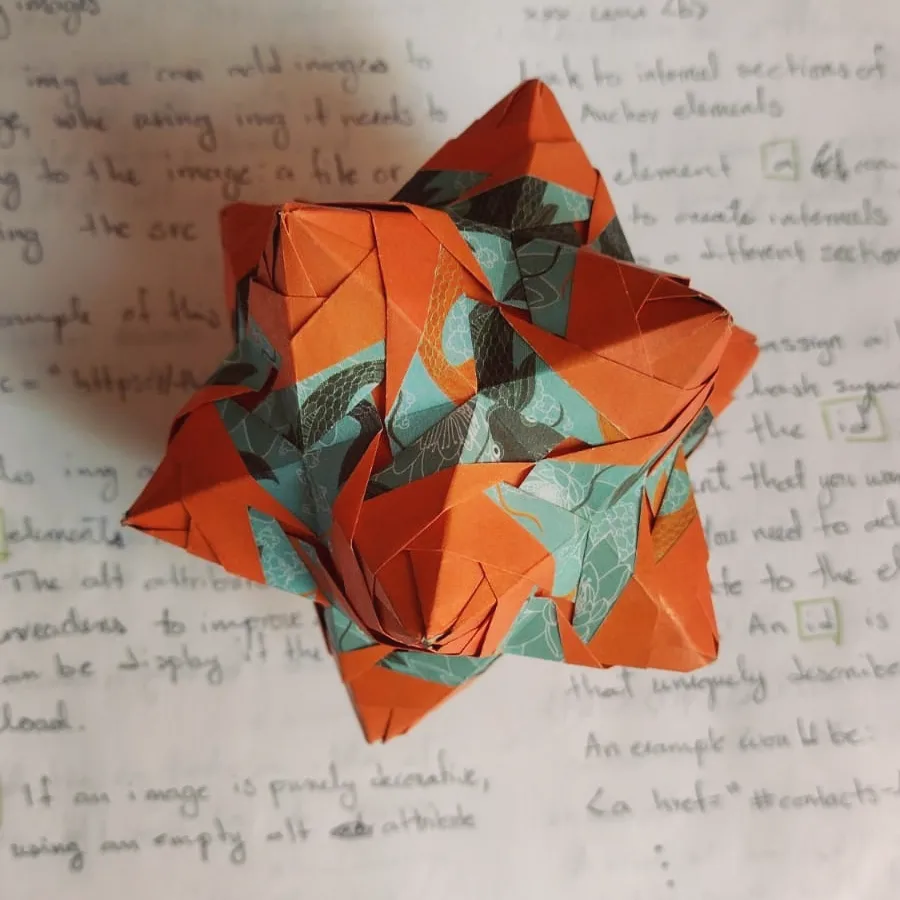 g images
img we can add images to
ge, while using img it needs to
ng to the image: a file or
ing the src
example of this
c = "https://
img
elements
The alt attribu
to improve
an be display if the
load.
If an image is purely decorative,
using an empty alt attribute
Link to internal sections of
Anchor elements
element a can
to create internals
a different section
assign a
hash
the id
nt that you wan
you need to ad
te to the el
An id is
that uniquely describe
An example would be:
<a href="#contacts-